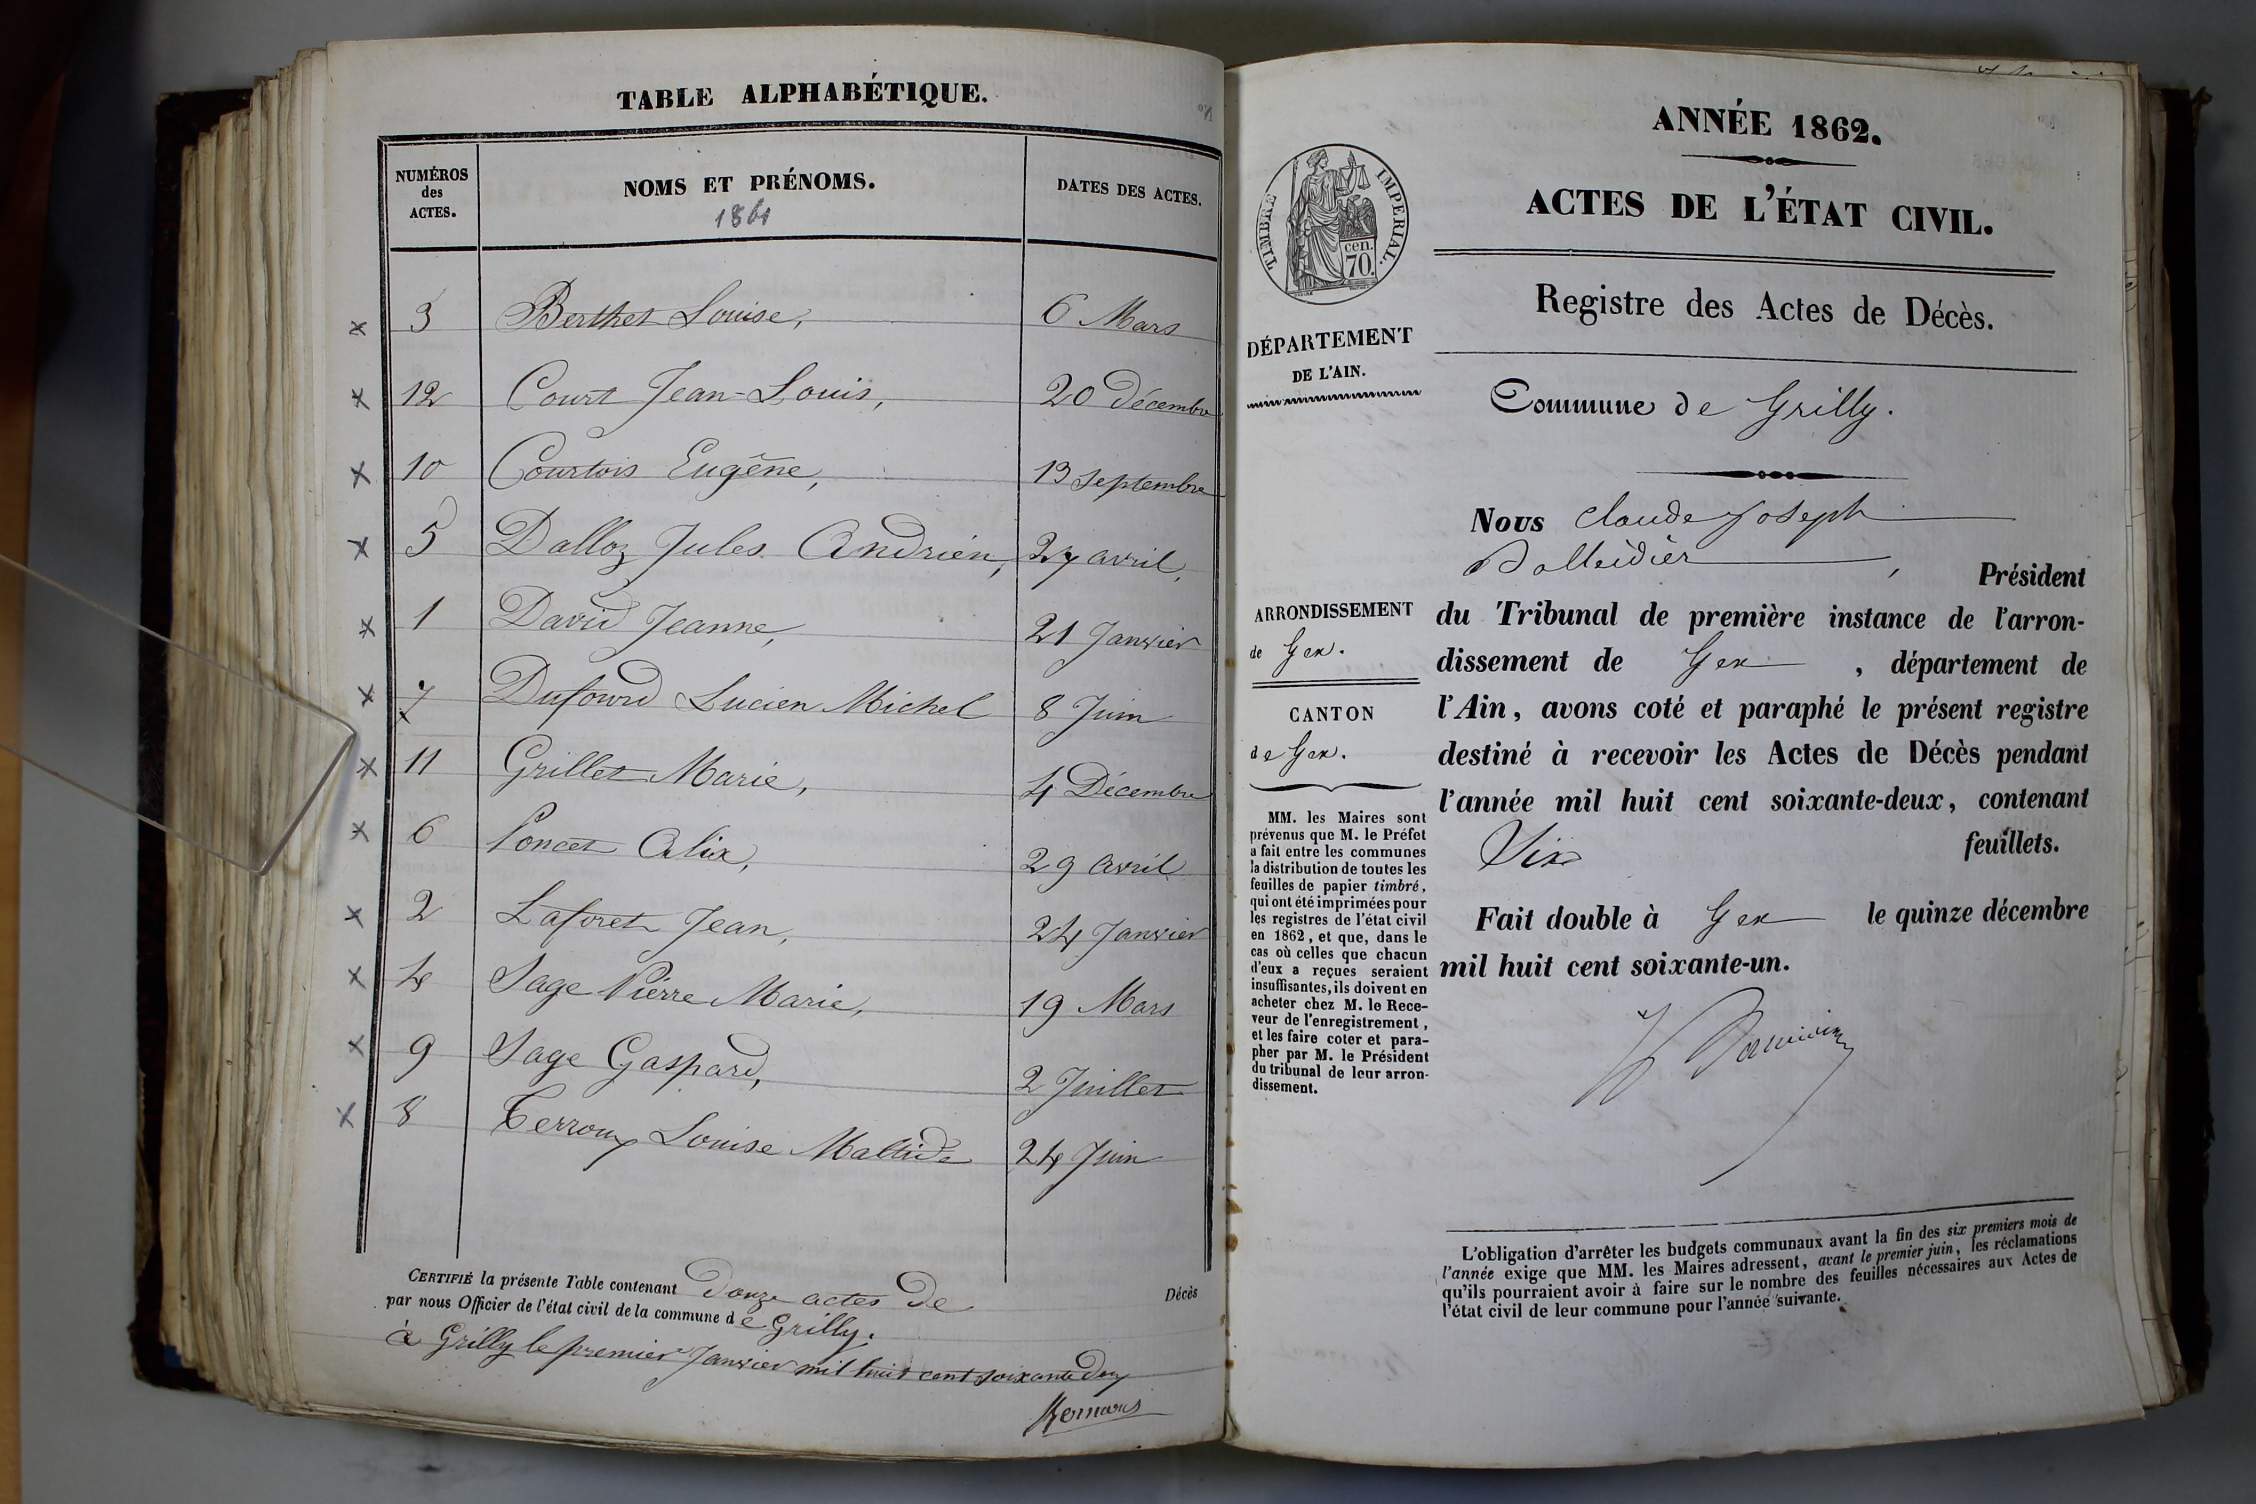 TABLE ALPHABÉTIQUE.
NUMÉROS
des
ACTES.
NOMS ET PRÉNOMS.
1861
DATES DES ACTES.
3 Berthet Louise, 6 Mars
12 Court Jean-Louis, 20 décembre
10 Courtois Eugêne, 13 septembre
5 Dalloz Jules Andrien, 27 avril,
1 David Jeanne, 21 Janvier
7 Dufourd Lucien Michel 8 Juin
11 Grillet Marie, 4 Décembre
6 Poncet Alix, 29 avril
2 Laforet Jean, 24 Janvier
4 Sage Pierre Marie, 19 Mars
9 Sage Gaspard, 2 Juillet
8 Terroux Louise 24 Juin
CERTIFIÉ la présente Table contenant douze actes de Décès
par nous Officier de l'état civil de la commune de Grilly.
à Grilly le premier Janvier mil huit cent soixante deux
ANNÉE 1862.
ACTES DE L'ÉTAT CIVIL.
TIMBRE IMPERIAL.
cen.
70.
Registre des Actes de Décès.
DÉPARTEMENT
DE L'AIN.
Commune de Grilly.
Nous Claude Joseph
, Président
du Tribunal de première instance de l'arron-
dissement de Gex , département de
l'Ain, avons coté et paraphé le présent registre
destiné à recevoir les Actes de Décès pendant
l'année mil huit cent soixante-deux, contenant
Six feuillets.
Fait double à Gex le quinze décembre
mil huit cent soixante-un.
ARRONDISSEMENT
de Gex.
CANTON
de Gex.
MM. les Maires sont
prévenus que M. le Préfet
a fait entre les communes
la distribution de toutes les
feuilles de papier timbré,
qui ont été imprimées pour
les registres de l'état civil
en 1862, et que, dans le
cas où celles que chacun
d'eux a reçues seraient
insuffisantes, ils doivent en
acheter chez M. le Rece-
veur de l'enregistrement,
et les faire coter et para-
pher par M. le Président
du tribunal de leur arron-
dissement.
L'obligation d'arrêter les budgets communaux avant la fin des six premiers mois de
l'année exige que MM. les Maires adressent, avant le premier juin, les réclamations
qu'ils pourraient avoir à faire sur le nombre des feuilles nécessaires aux Actes de
l'état civil de leur commune pour l'année suivante.